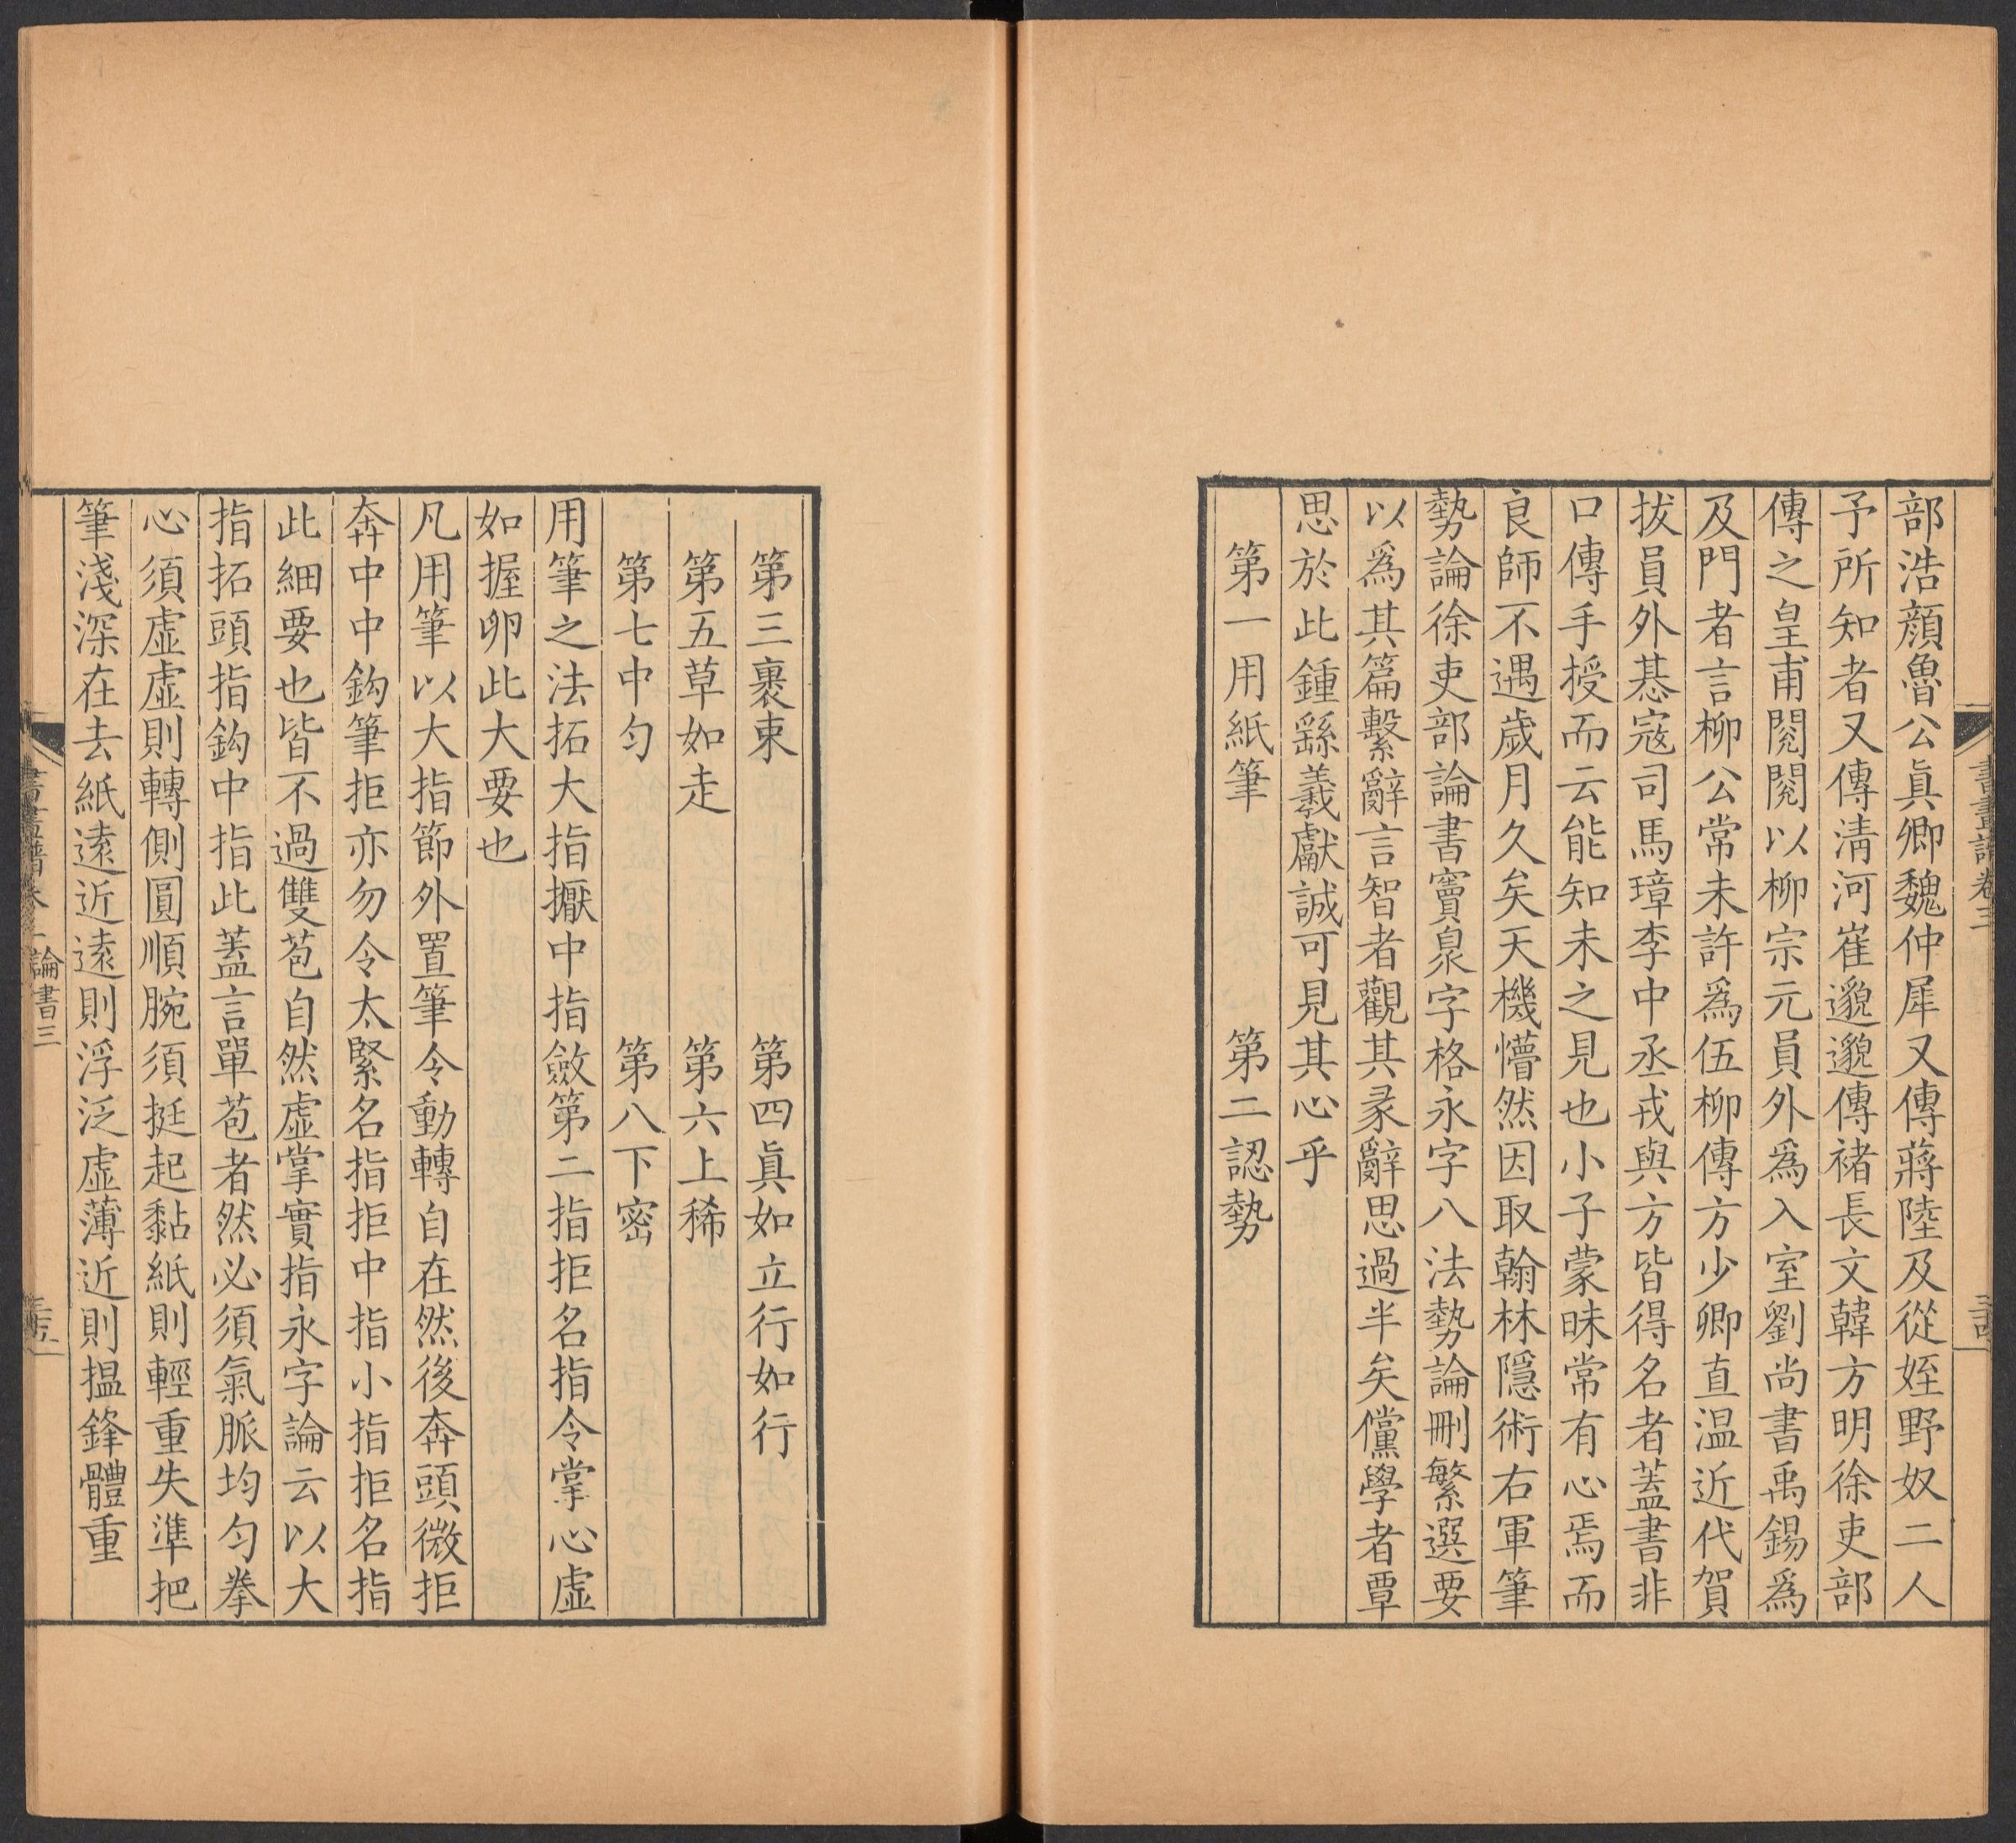 部浩顔魯公眞卿魏仲犀又傳蔣陸及從姪野奴二人
予所知者又傳淸河崔邈邈傳褚長文韓方明徐吏部
傳之皇甫閱閱以柳宗元員外爲入室劉尚書禹錫爲
及門者言柳公常未許爲伍柳傳方少卿直温近代賀
拔員外惎寇司馬璋李中丞戎與方皆得名者蓋書非
口傳手授而云能知未之見也小子蒙昧常有心焉而
良師不遇歲月久矣天機懵然因取翰林隱術右軍筆
勢論徐吏部論書竇臮字格永字八法勢論刪繁選要
以爲其篇繫辭言智者觀其彖辭思過半矣儻學者覃
思於此鍾繇羲獻誠可見其心乎
第一用紙筆　第二認勢
書畫譜卷三
三十四
第三裹束　第四眞如立行如行
第五草如走　第六上稀
第七中匀　第八下密
用筆之法拓大指擫中指斂第二指拒名指令掌心虛
如握卵此大要也
凡用筆以大指節外置筆令動轉自在然後奔頭微拒
奔中中鈎筆拒亦勿令太緊名指拒中指小指拒名指
此細要也皆不過雙苞自然虛掌實指永字論云以大
指拓頭指鈎中指此蓋言單苞者然必須氣脈均匀拳
心須虛虛則轉側圓順腕須挺起黏紙則輕重失準把
筆淺深在去紙遠近遠則浮泛虛薄近則揾鋒體重
論書三